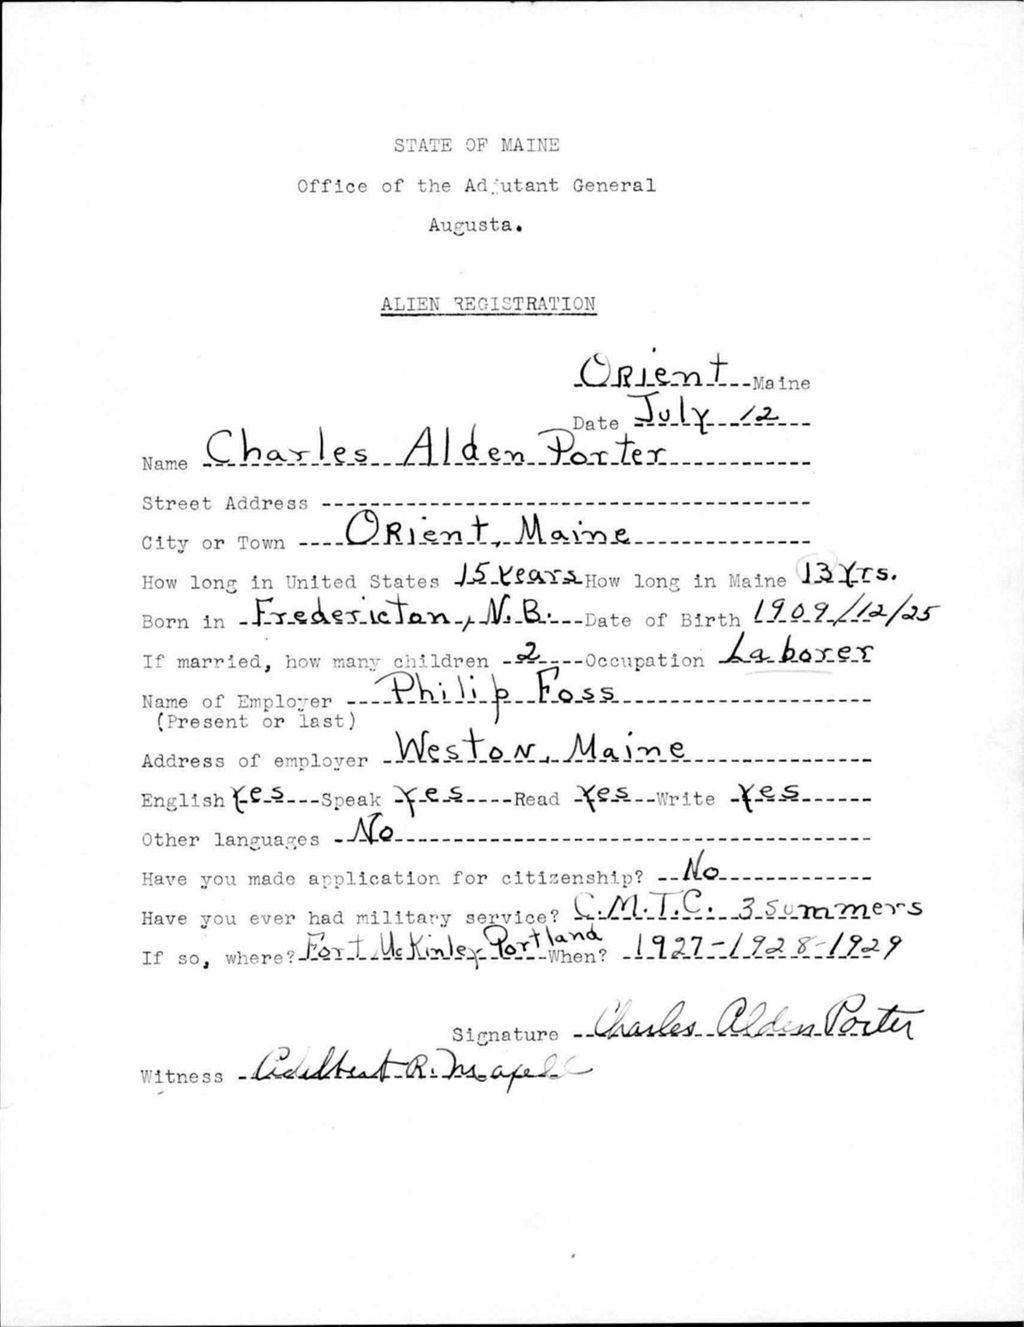 STATE OF MAINE
Office of the Adjutant General
Augusta.
ALIEN REGISTRATION
Orient Maine
Date July 12
Name Charles Alden Porter
Street Address
City or Town Orient, Maine
How long in United States 15 years How long in Maine 13 Yrs.
Born in Fredericton, N.B. Date of Birth 1909/12/25
If married, how many children 2 Occupation Laborer
Name of Employer Philip Foss
(Present or last)
Address of employer Weston, Maine
English Yes Speak Yes Read Yes Write Yes
Other languages No
Have you made application for citizenship? No
Have you ever had military service? C.M.T.C. 3 Summers
If so, where? Fort McKinley Portland When? 1927-1928-1929
Signature Charles Alden Porter
Witness Adelbert R.